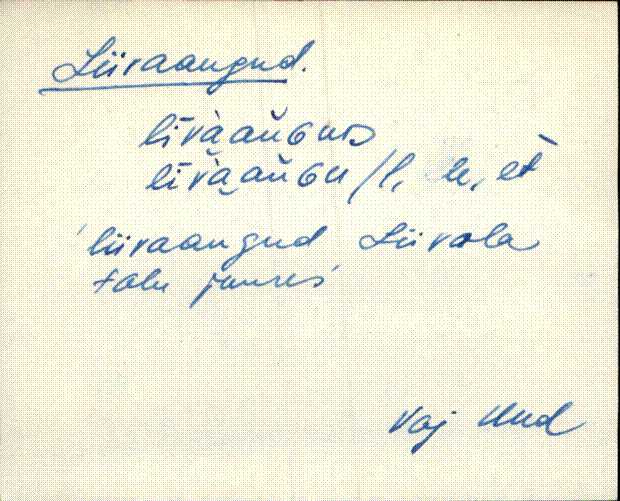 Liivaangud.
līvàaŭGuD
līvàaŭGu/l, le, et
'liivaangud Liivala
talu juures'
Vaj Uud